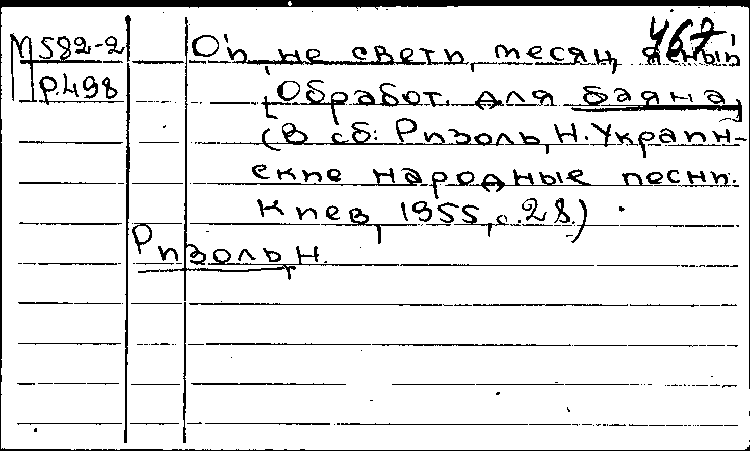 467
М582-2
Р498
Ой не свети, месяц, ясный
[Обработ. для баяна]
(В сб: Ризоль, Н. Украин-
ские народные песни.
Киев, 1955, с. 28.)
Ризоль, Н.